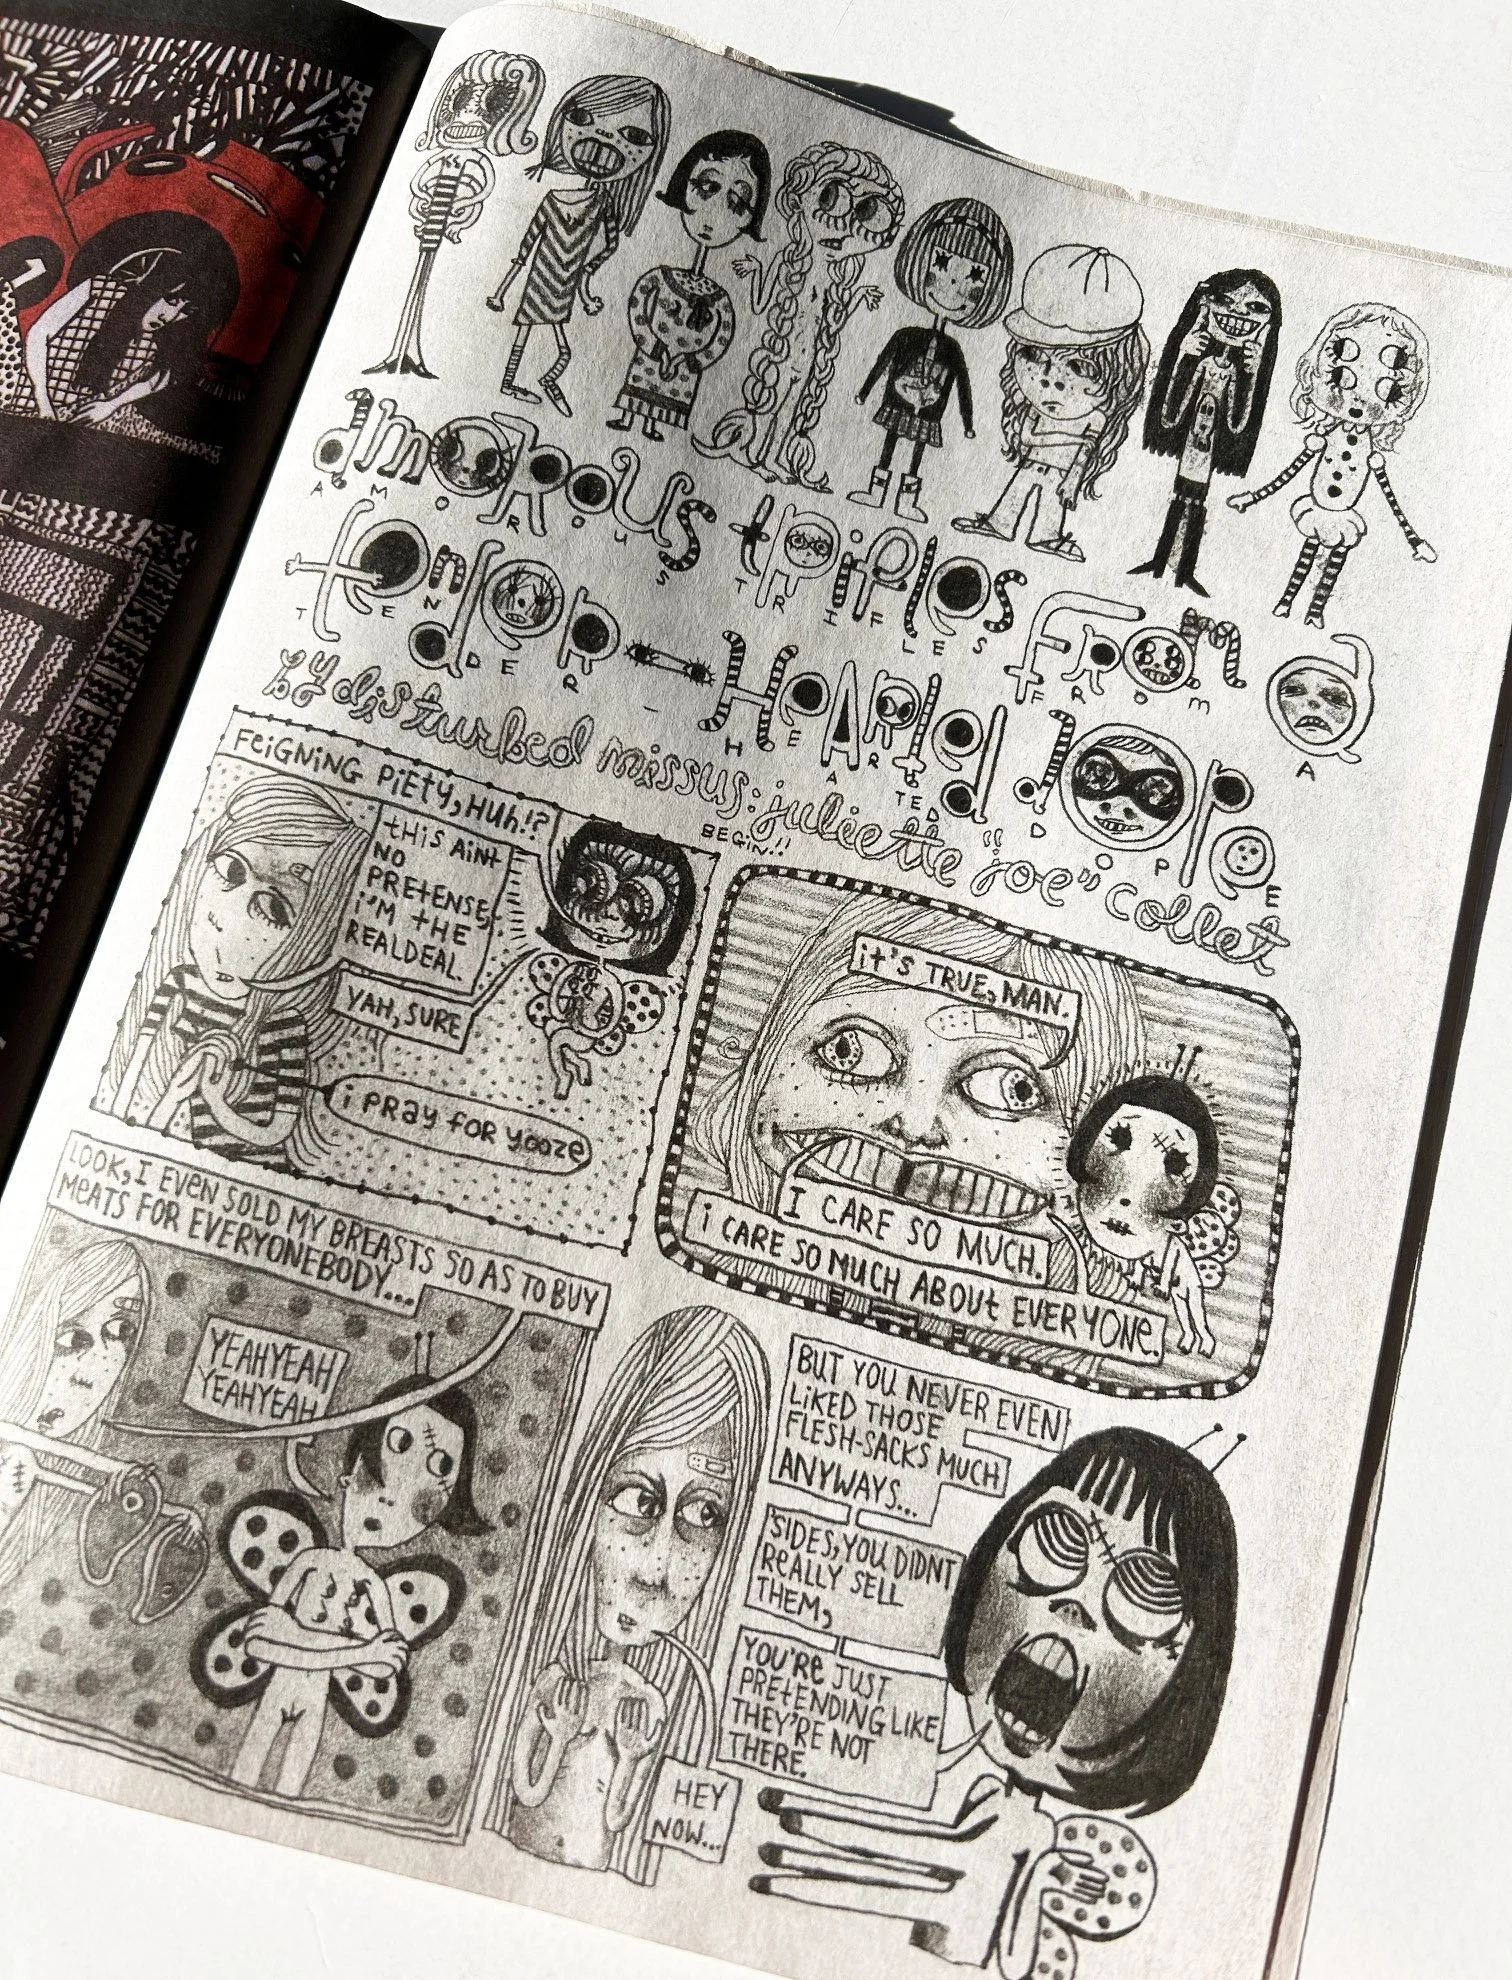 amorous trifles from a
A M O R O U S T R I F L E S F R O M A
tender-hearted dope
T E N D E R - H E A R T E D D O P E
by disturbed missus: juliette "joe" collet
BEGIN!!
FEIGNING PIETY, HUH!?
THIS AINT
NO
PRETENSE,
I'M THE
REALDEAL.
YAH, SURE
i PRAY FOR YOOZE
it'S TRUE, MAN.
I CARE SO MUCH.
i CARE SO MUCH ABOUt EVERYONE.
LOOK, I EVEN SOLD MY BREASTS SO AS TO BUY
MEATS FOR EVERYONEBODY...
YEAHYEAH
YEAHYEAH
HEY
NOW...
BUT YOU NEVER EVEN
LIKED THOSE
FLESH-SACKS MUCH
ANYWAYS...
'SIDES, YOU DIDNT
REALLY SELL
THEM,
YOU'RE JUST
PRETENDING LIKE
THEY'RE NOT
THERE.